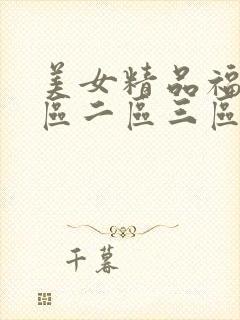 美女精品福
區二區三區
千暮